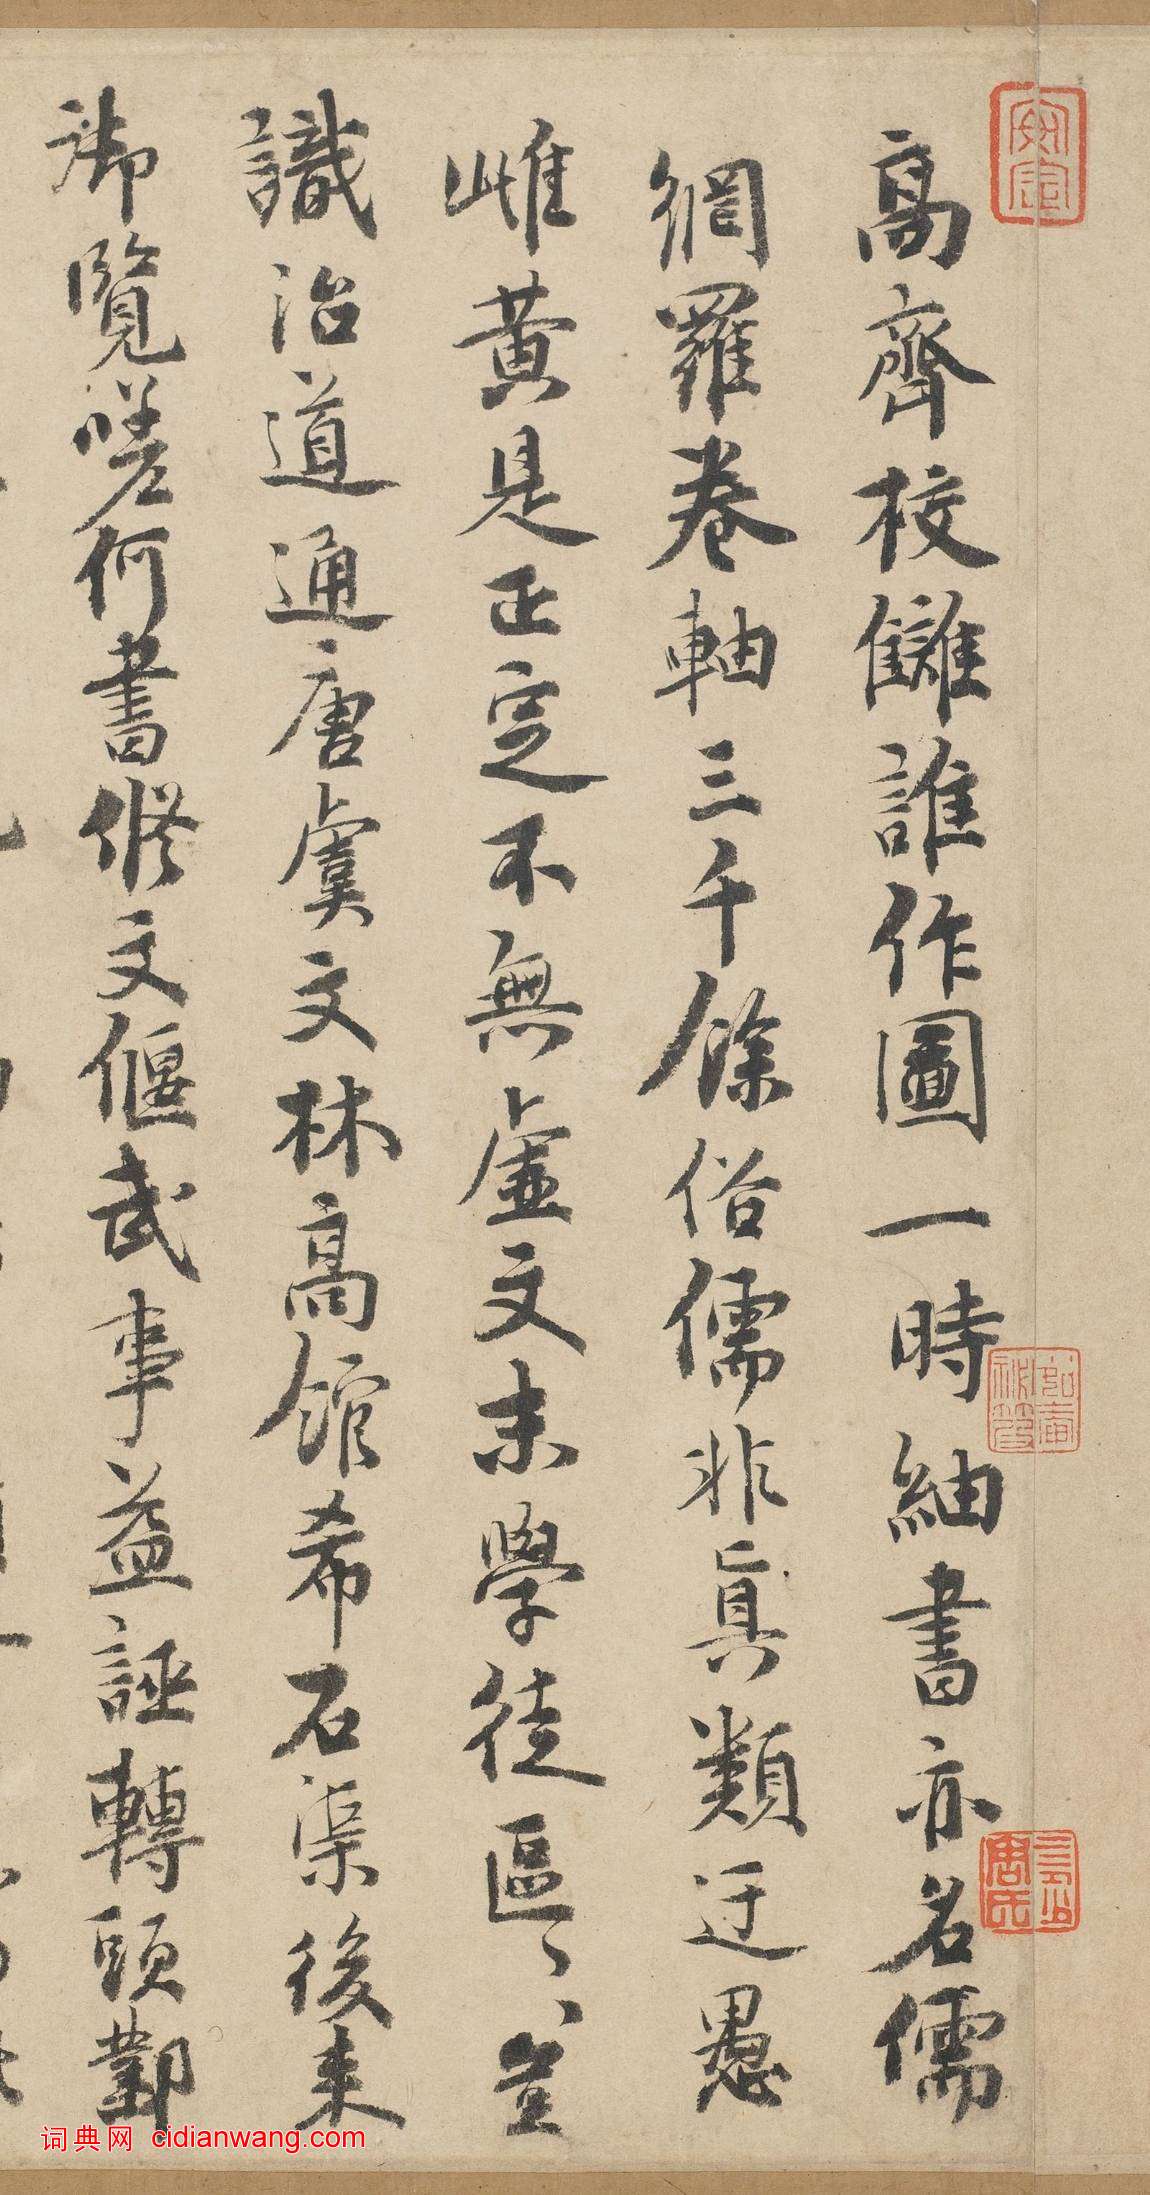 高齊校讎誰作圖一時紬書亦名儒
網羅卷軸三千餘俗儒非真類迂愚
雌黃是正定不無虛文末學徒區〻豈
識治道通唐虞文林高館希石渠後來
御覽嗟何書修文偃武事益誣轉頭鄴
周氏
词典网 cidianwang.com